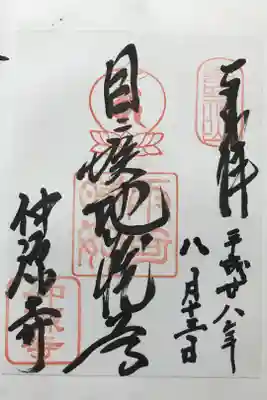 奉拝
平成廿八年
八月十三日
目疾地蔵尊
仲源寺